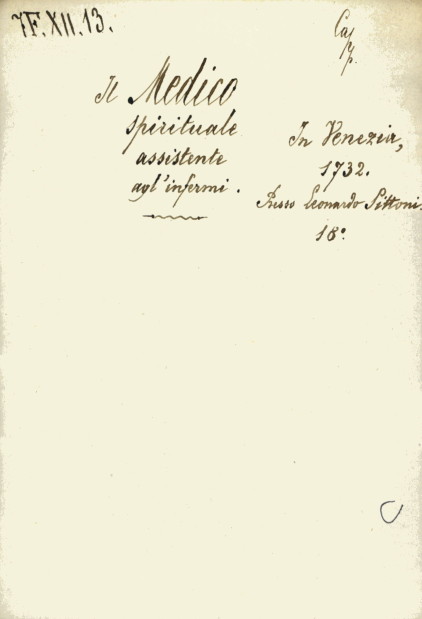 7F.XII.13.
Il Medico
spirituale
assistente
agl'infermi.
In Venezia,
1732.
Presso Leonardo Pittoni.
18°.